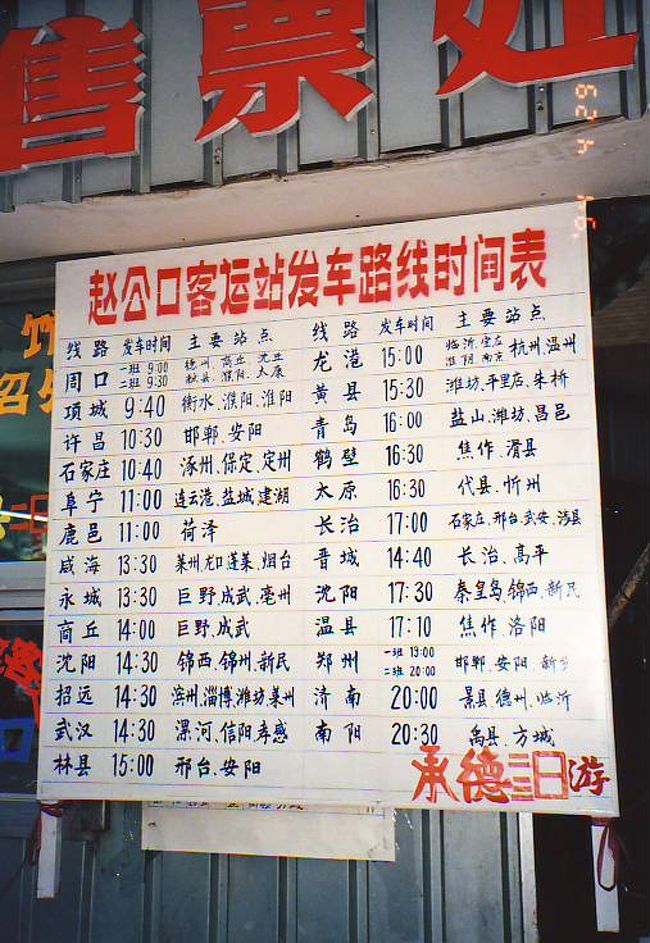 售票处
94 4 29
赵公口客运站发车路线时间表
线路 发车时间 主要站点
周口 一班 9:00 二班 9:30 德州、商丘、沈丘 鄄县、濮阳、太康
项城 9:40 衡水、濮阳、淮阳
许昌 10:30 邯郸、安阳
石家庄 10:40 涿州、保定、定州
阜宁 11:00 连云港、盐城、建湖
鹿邑 11:00 荷泽
威海 13:30 莱州、龙口、蓬莱、烟台
永城 13:30 巨野、成武、亳州
商丘 14:00 巨野、成武
沈阳 14:30 锦西、锦州、新民
招远 14:30 滨州、淄博、潍坊、莱州
武汉 14:30 漯河、信阳、孝感
林县 15:00 邢台、安阳
线路 发车时间 主要站点
龙港 15:00 临沂 淮阴 南京 杭州、温州
黄县 15:30 潍坊、平里店、朱桥
青岛 16:00 盐山、潍坊、昌邑
鹤壁 16:30 焦作、滑县
太原 16:30 代县、忻州
长治 17:00 石家庄、邢台、武安、涉县
晋城 14:40 长治、高平
沈阳 17:30 秦皇岛、锦西、新民
温县 17:10 焦作、洛阳
郑州 一班 19:00 二班 20:00 邯郸、安阳、新乡
济南 20:00 景县、德州、临沂
南阳 20:30 禹县、方城
承德三日游